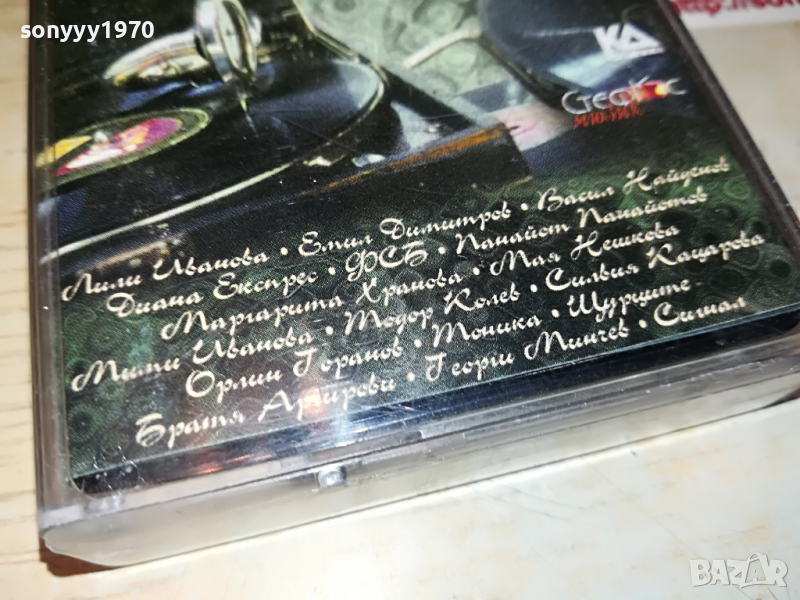 sonyyy1970
sonyyy1970
КА
Стефкос
МЮЗИК
Лили Иванова • Емил Димитров • Васил Найденов
Диана Експрес • ФСБ • Панайот Панайотов
Маргарита Хранова • Мая Нешкова
Мими Иванова • Тодор Колев • Силвия Кацарова
Орлин Горанов • Тоника • Щурците •
Братя Аргирови • Георги Минчев • Сигнал
BAZAR